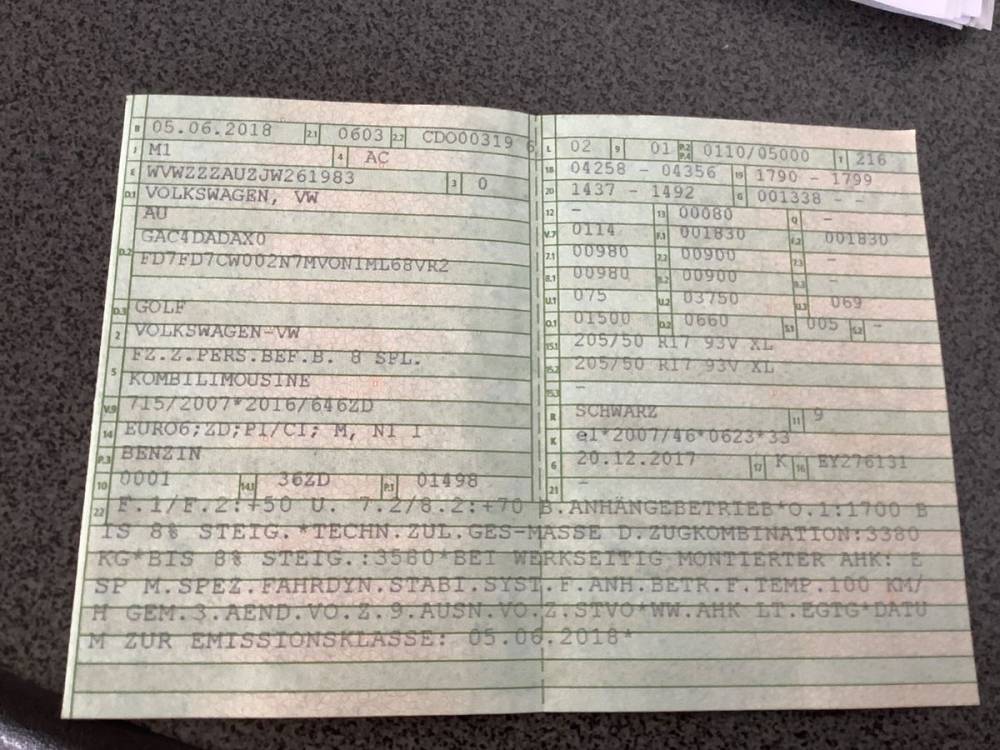 B 05.06.2018 2.1 0603 2.2 CDO00319 6
J M1 4 AC
E WVWZZZAUZJW261983 3 0
D.1 VOLKSWAGEN, VW
AU
D.2 GAC4DADAX0
FD7FD7CW002N7MVON1ML68VR2
D.3 GOLF
2 VOLKSWAGEN-VW
5 FZ.Z.PERS.BEF.B. 8 SPL.
KOMBILIMOUSINE
V.9 715/2007*2016/646ZD
14 EURO6;ZD;PI/CI; M, N1 I
P.3 BENZIN
10 0001 14.1 36ZD P.1 01498
L 02 9 01 P.2 P.4 0110/05000 T 216
18 04258 - 04356 19 1790 - 1799
20 1437 - 1492 G 001338 - -
12 - 13 00080 Q -
V.7 0114 F.1 001830 F.2 001830
7.1 00980 7.2 00900 7.3 -
8.1 00980 8.2 00900 8.3 -
U.1 075 U.2 03750 U.3 069
O.1 01500 O.2 0660 S.1 005 S.2 -
15.1 205/50 R17 93V XL
15.2 205/50 R17 93V XL
15.3 -
R SCHWARZ 11 9
K e1*2007/46*0623*33
6 20.12.2017 17 K 16 EY276131
21 -
22 F.1/F.2:+50 U. 7.2/8.2:+70 B.ANHÄNGEBETRIEB*O.1:1700 B
IS 8% STEIG.*TECHN.ZUL.GES-MASSE D.ZUGKOMBINATION:3380
KG*BIS 8% STEIG.:3580*BEI WERKSEITIG MONTIERTER AHK: E
SP M.SPEZ.FAHRDYN.STABI.SYST.F.ANH.BETR.F.TEMP.100 KM/
H GEM.3.AEND.VO.Z.9.AUSN.VO.Z.STVO*WW.AHK LT.EGTG*DATU
M ZUR EMISSIONSKLASSE: 05.06.2018*